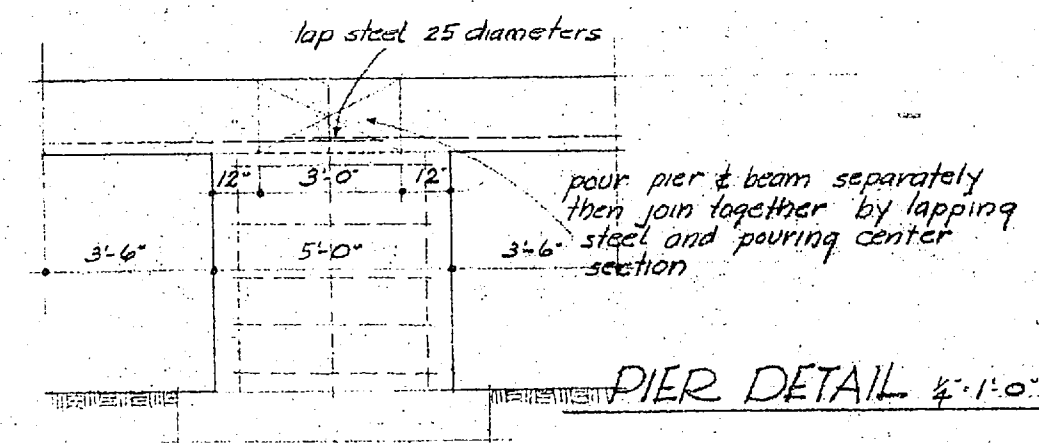 lap steel 25 diameters
12" 3'-0" 12"
pour pier & beam separately
then join together by lapping
steel and pouring center
section
3'-6" 5'-0" 3'-6"
PIER DETAIL ¼"=1'-0"